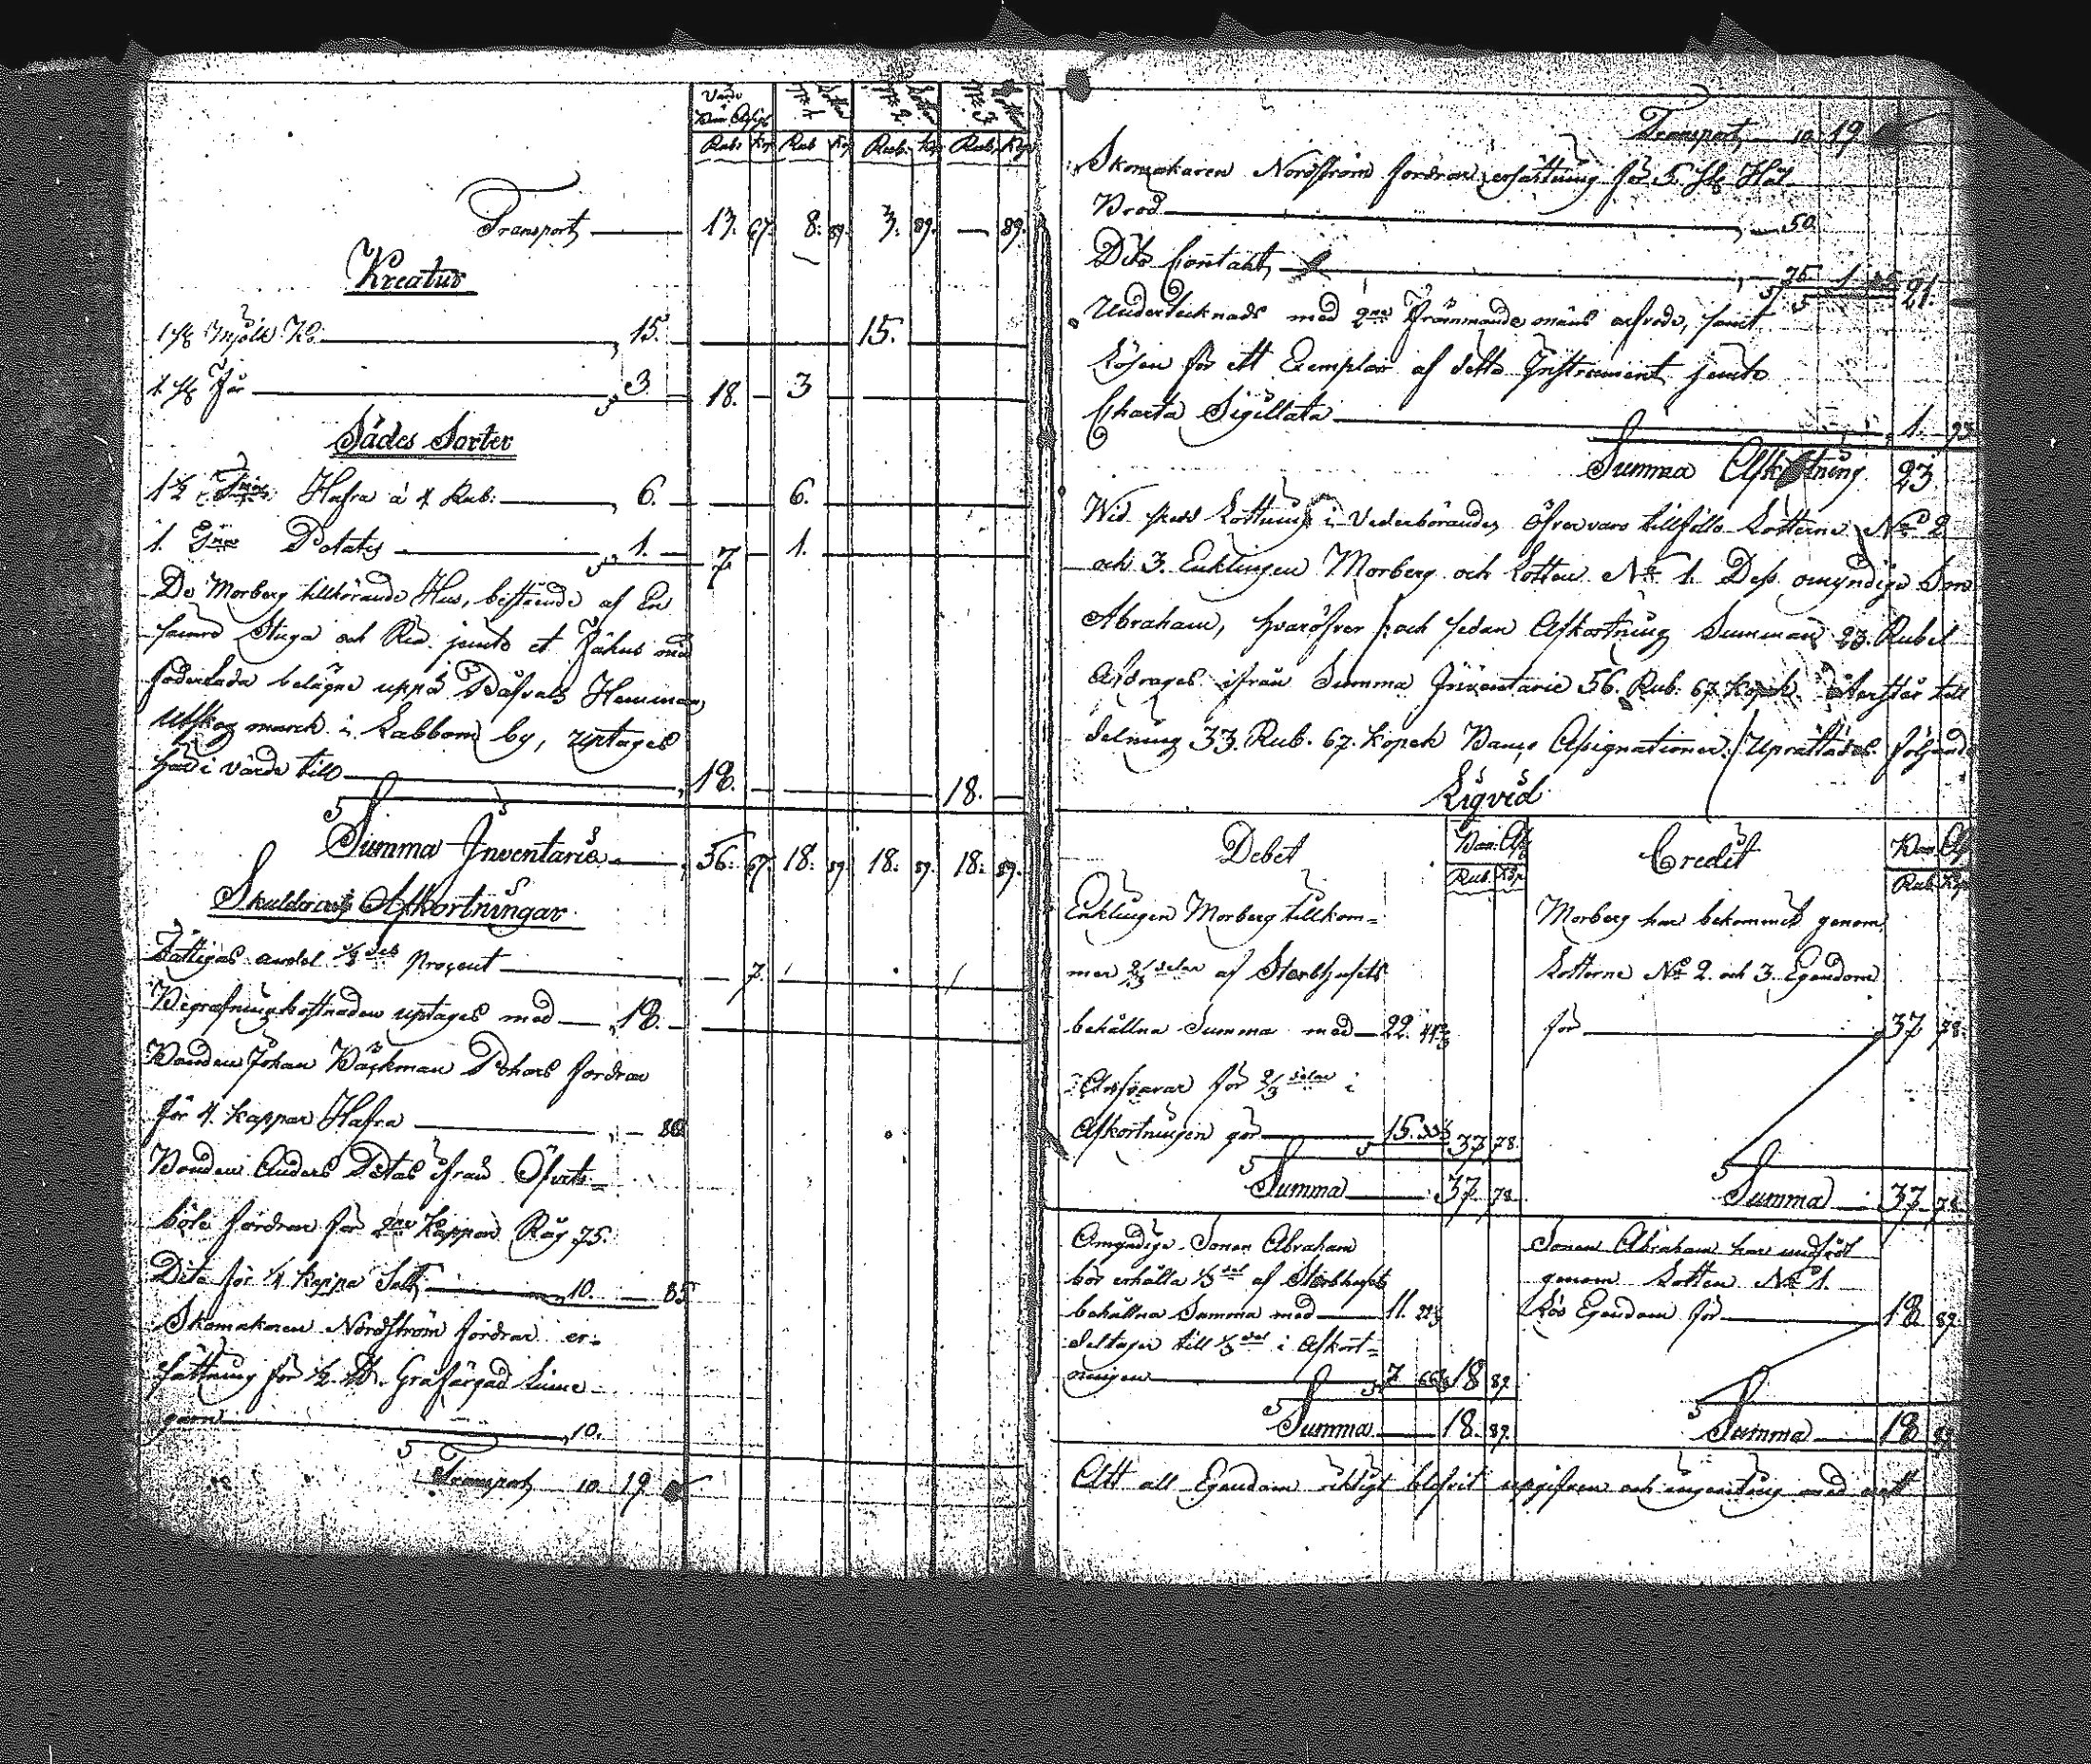 Värde
Banco Assign: Lotten N:o 1. Lotten N:o 2. Lotten N:o 3.
Rub: Kop Rub Kop Rub. Kop Rub. Kop
Transport 13. 67. 8. 89. 3. 89. — 89.
Kreatur
1 st: Mjölk Ko 15. 15.
1 st: Får 3. 18. 3
Sädes Sorter
1 1/2 Hafra à 4 Rub: 6. 6.
1. Potates 1. 7 1.
De Morberg tillhörande Hus, bestående af En
Stuga och Ria jemte et Fähus med
foderlada belägne uppå Hemmans
Utskog march i Labbom by, uptages
här i värde till 18. 18.
Summa Inventarie 56. 67. 18. 89. 18. 89. 18. 89.
Skulder och Afkortningar
Fattigas andel 1/8 dels Procent 7.
Begrafningskostnaden uptages med 18.
Bonden Johan Bäckman fordrar
för 4. kappar Hafra 80
Bonden Anders ifrån Öfverts=
böle fordrar för 2ne Kappar Råg 75.
Dito för 1/4 kappa Salt 10. 85
Skomakaren Nordström fordrar er=
sättning för 1/2 Gråfärgad Linne
garn 10.
Transport 10 19
Transport 10. 19
Skomakaren Nordström fordrar ersättning för 5. st: Hål
Bröd 50.
Dito Contant 75. 1. 25 21.
Undertecknads med 2ne Främmande mäns arfvode, samt
Lösen för ett Exemplar af detta Instrument jemte
Charta Sigillata 1. 93
Summa Afkortning 23.
Wid skedd Lottning i Vederbörandes öfvervaro tillföllo Lotterne N:o 2
och 3. Enklingen Morberg och Lotten N:o 1. Dess omyndige Son
Abraham, hvaröfver och sedan Afkortnings Summan 23. Rubel
Afdrages ifrån Summa Inventarie 56. Rub. 67. Kopek. återstår till
delning 33. Rub. 67. Kopek Banco Assignationer. Uprättades följande
Liqvid
Debet Ban: Ass Credit Ban: Ass
Rub. Kop Rub. Kop
Enklingen Morberg tillkom=
mer 2/3 delar af Sterbhusets
behållna Summa med 22. 44 2/3
Ansvarar för 2/3 delar i
Afkortningen gör 15. 33 1/3 37 78.
Summa 37 78
Morberg har bekommit genom
Lotterne N:o 2. och 3. Egendom
för 37 78.
Summa 37 78.
Omyndige Sonen Abraham
bör erhålla 1/3 del af Sterbhusets
behållna Summa med 11. 22 1/3
deltager till 1/3 del i Afkort=
ningen 7 66 2/3 18 89
Summa 18. 89.
Sonen Abraham har undfått
genom Lotten N:o 1.
Lös Egendom för 18. 89.
Summa 18 89
Att all Egendom riktigt blifvit upgifven och ingenting med vett